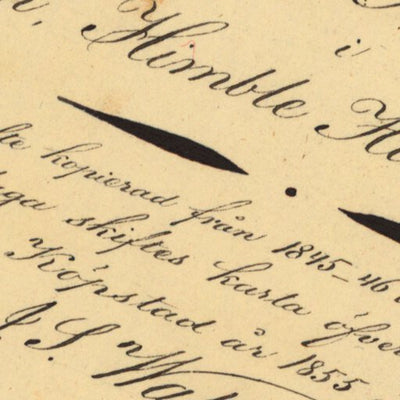 i
Himble H
kopierad från 1845-46
skiftes karta öfver
Köpstad år 1855
J S Wa